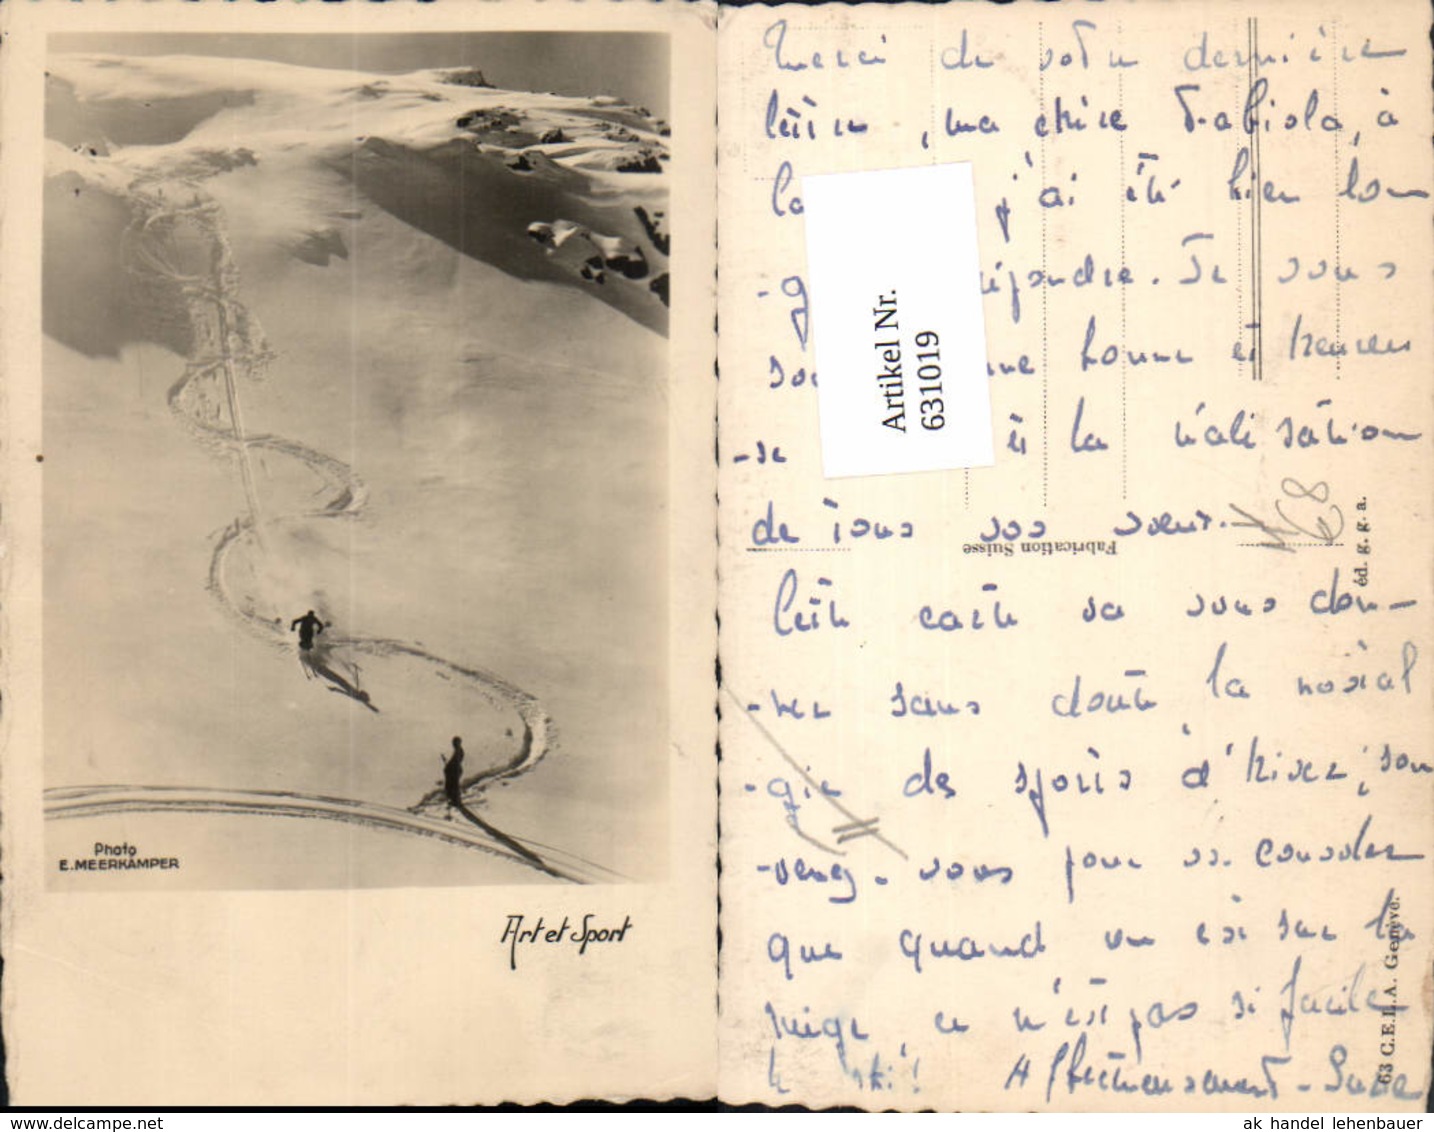 Photo
E. MEERKÄMPER
Art et Sport
Merci de votre dernière
lettre, ma chère Fabiola, à
la j'ai été bien lon
-g répondre. Je vous
sou une bonne et heureu
-se et la réalisation
de tous vos voeux.
Cette carte va vous don-
-ner sans doute, la nostal
-gie des sports d'hiver; sou
-venez-vous pour vs. consoler
que quand on est sur la
neige, ce n'est pas si facile
le ski! Affectueusement -
Artikel Nr.
631019
Fabrication Suisse
68
éd. g. g. a.
63 C.E.L.A. Genève.
ak handel lehenbauer